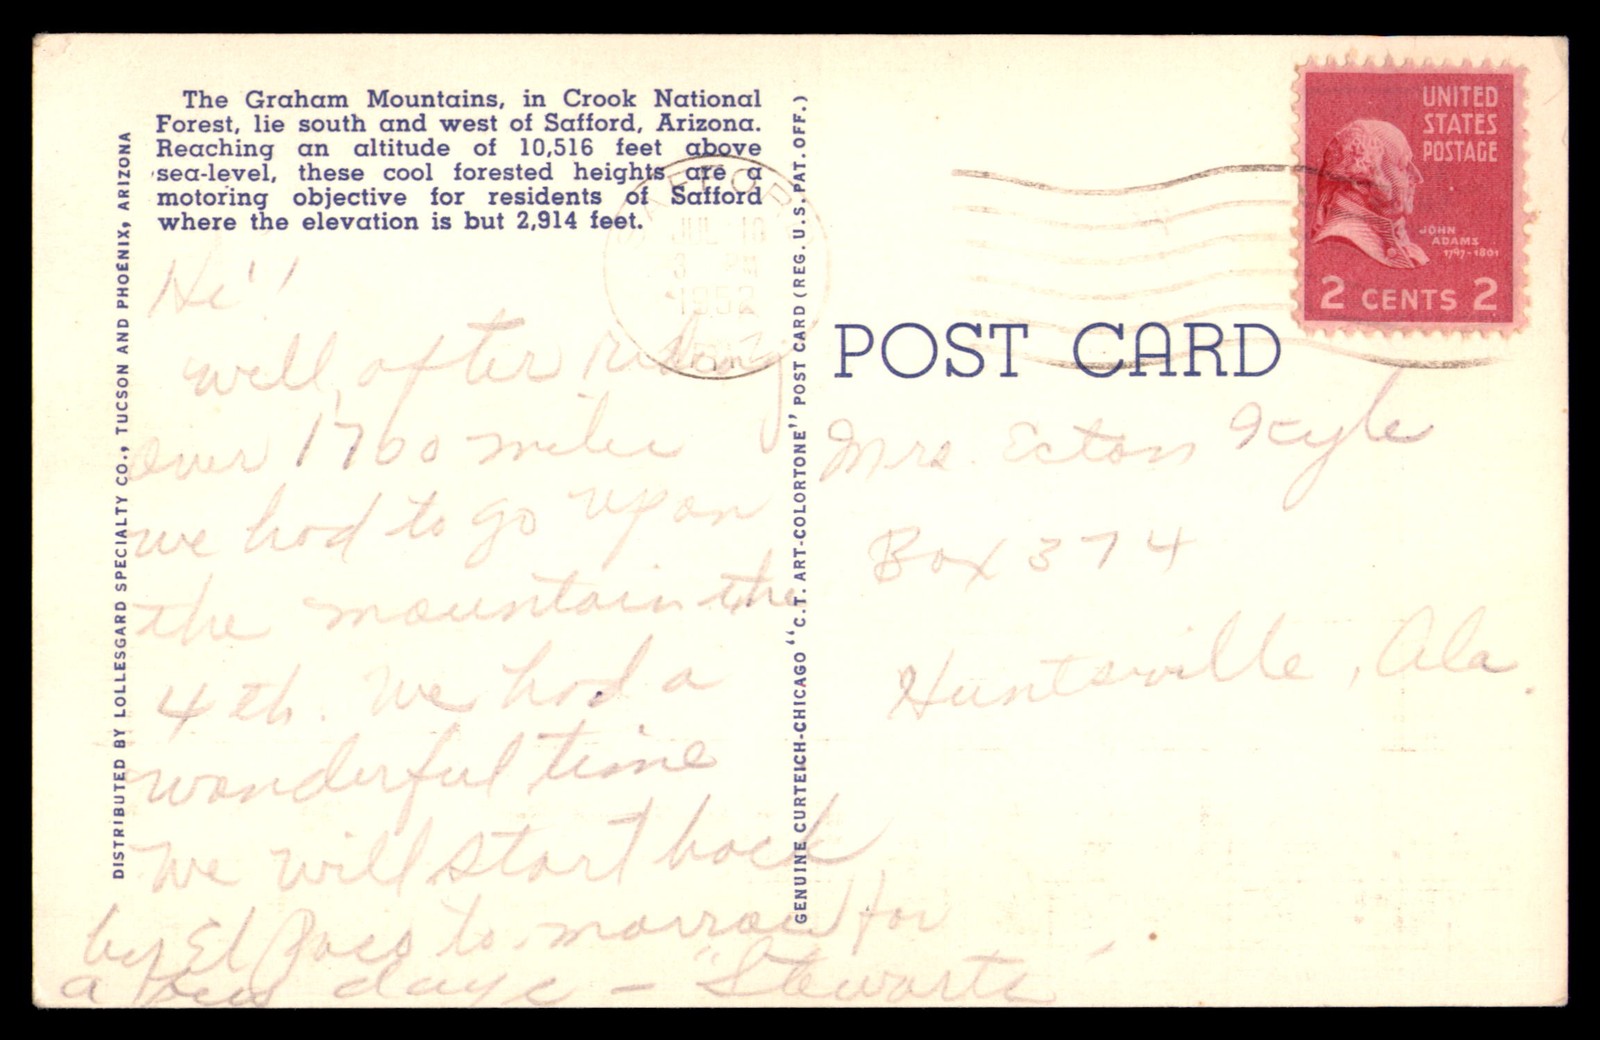 The Graham Mountains, in Crook National
Forest, lie south and west of Safford, Arizona.
Reaching an altitude of 10,516 feet above
sea-level, these cool forested heights are a
motoring objective for residents of Safford
where the elevation is but 2,914 feet.
DISTRIBUTED BY LOLLESGARD SPECIALTY CO., TUCSON AND PHOENIX, ARIZONA
Hi!!
Well, after riding
over 1760 miles
we had to go up on
the mountain the
4th. We had a
wonderful time
We will start back
by El Paso to-morrow for
a few days - "Stewarts"
GENUINE CURTEICH-CHICAGO "C.T. ART-COLORTONE" POST CARD (REG. U.S. PAT. OFF.)
JUL 18
PM
1952
ARIZ
UNITED
STATES
POSTAGE
JOHN
ADAMS
1797-1801
2 CENTS 2
POST CARD
Mrs. Ecton Kyle
Box 374
Huntsville, Ala.